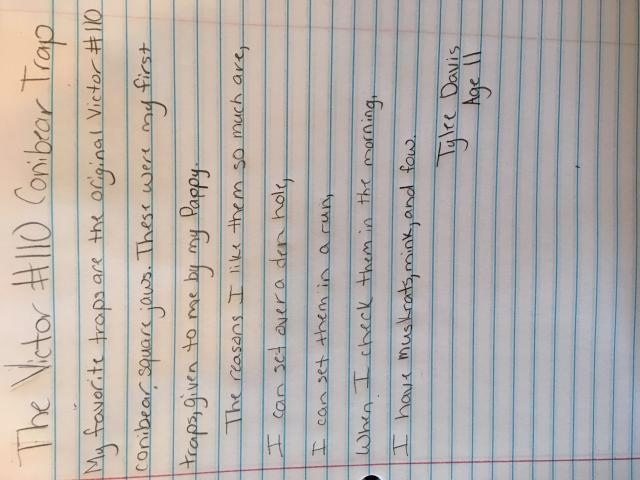 The Victor #110 Conibear Trap
My favorite traps are the original Victor #110
conibear, square jaws. These were my first
traps, given to me by my Pappy.
The reasons I like them so much are,
I can set over a den hole,
I can set them in a run,
When I check them in the morning,
I have muskrats, mink, and fow.
Tylee Davis
Age 11